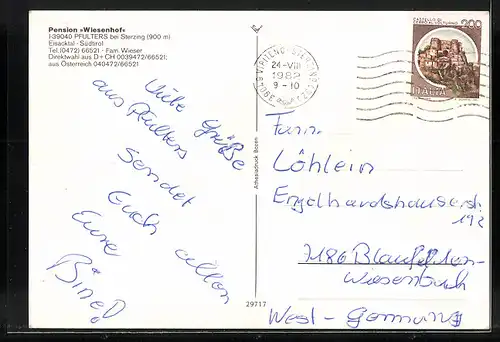 Pension »Wiesenhof«
I-39040 PFULTERS bei Sterzing (900 m)
Eisacktal · Südtirol
Tel. (0472) 66521 · Fam. Wieser
Direktwahl aus D + CH 0039472/66521;
aus Österreich 040472/66521
24-VIII
1982
9 - 10
200
ITALIA
Viele Grüße
aus Pfulters
sendet
Euch allen
Eure
Bine
Athesiadruck Bozen
29717
Fam.
Löhlein
Engelhardshauserstr.
192
7186 Blaufelden-
Wiesenbach
West-Germany